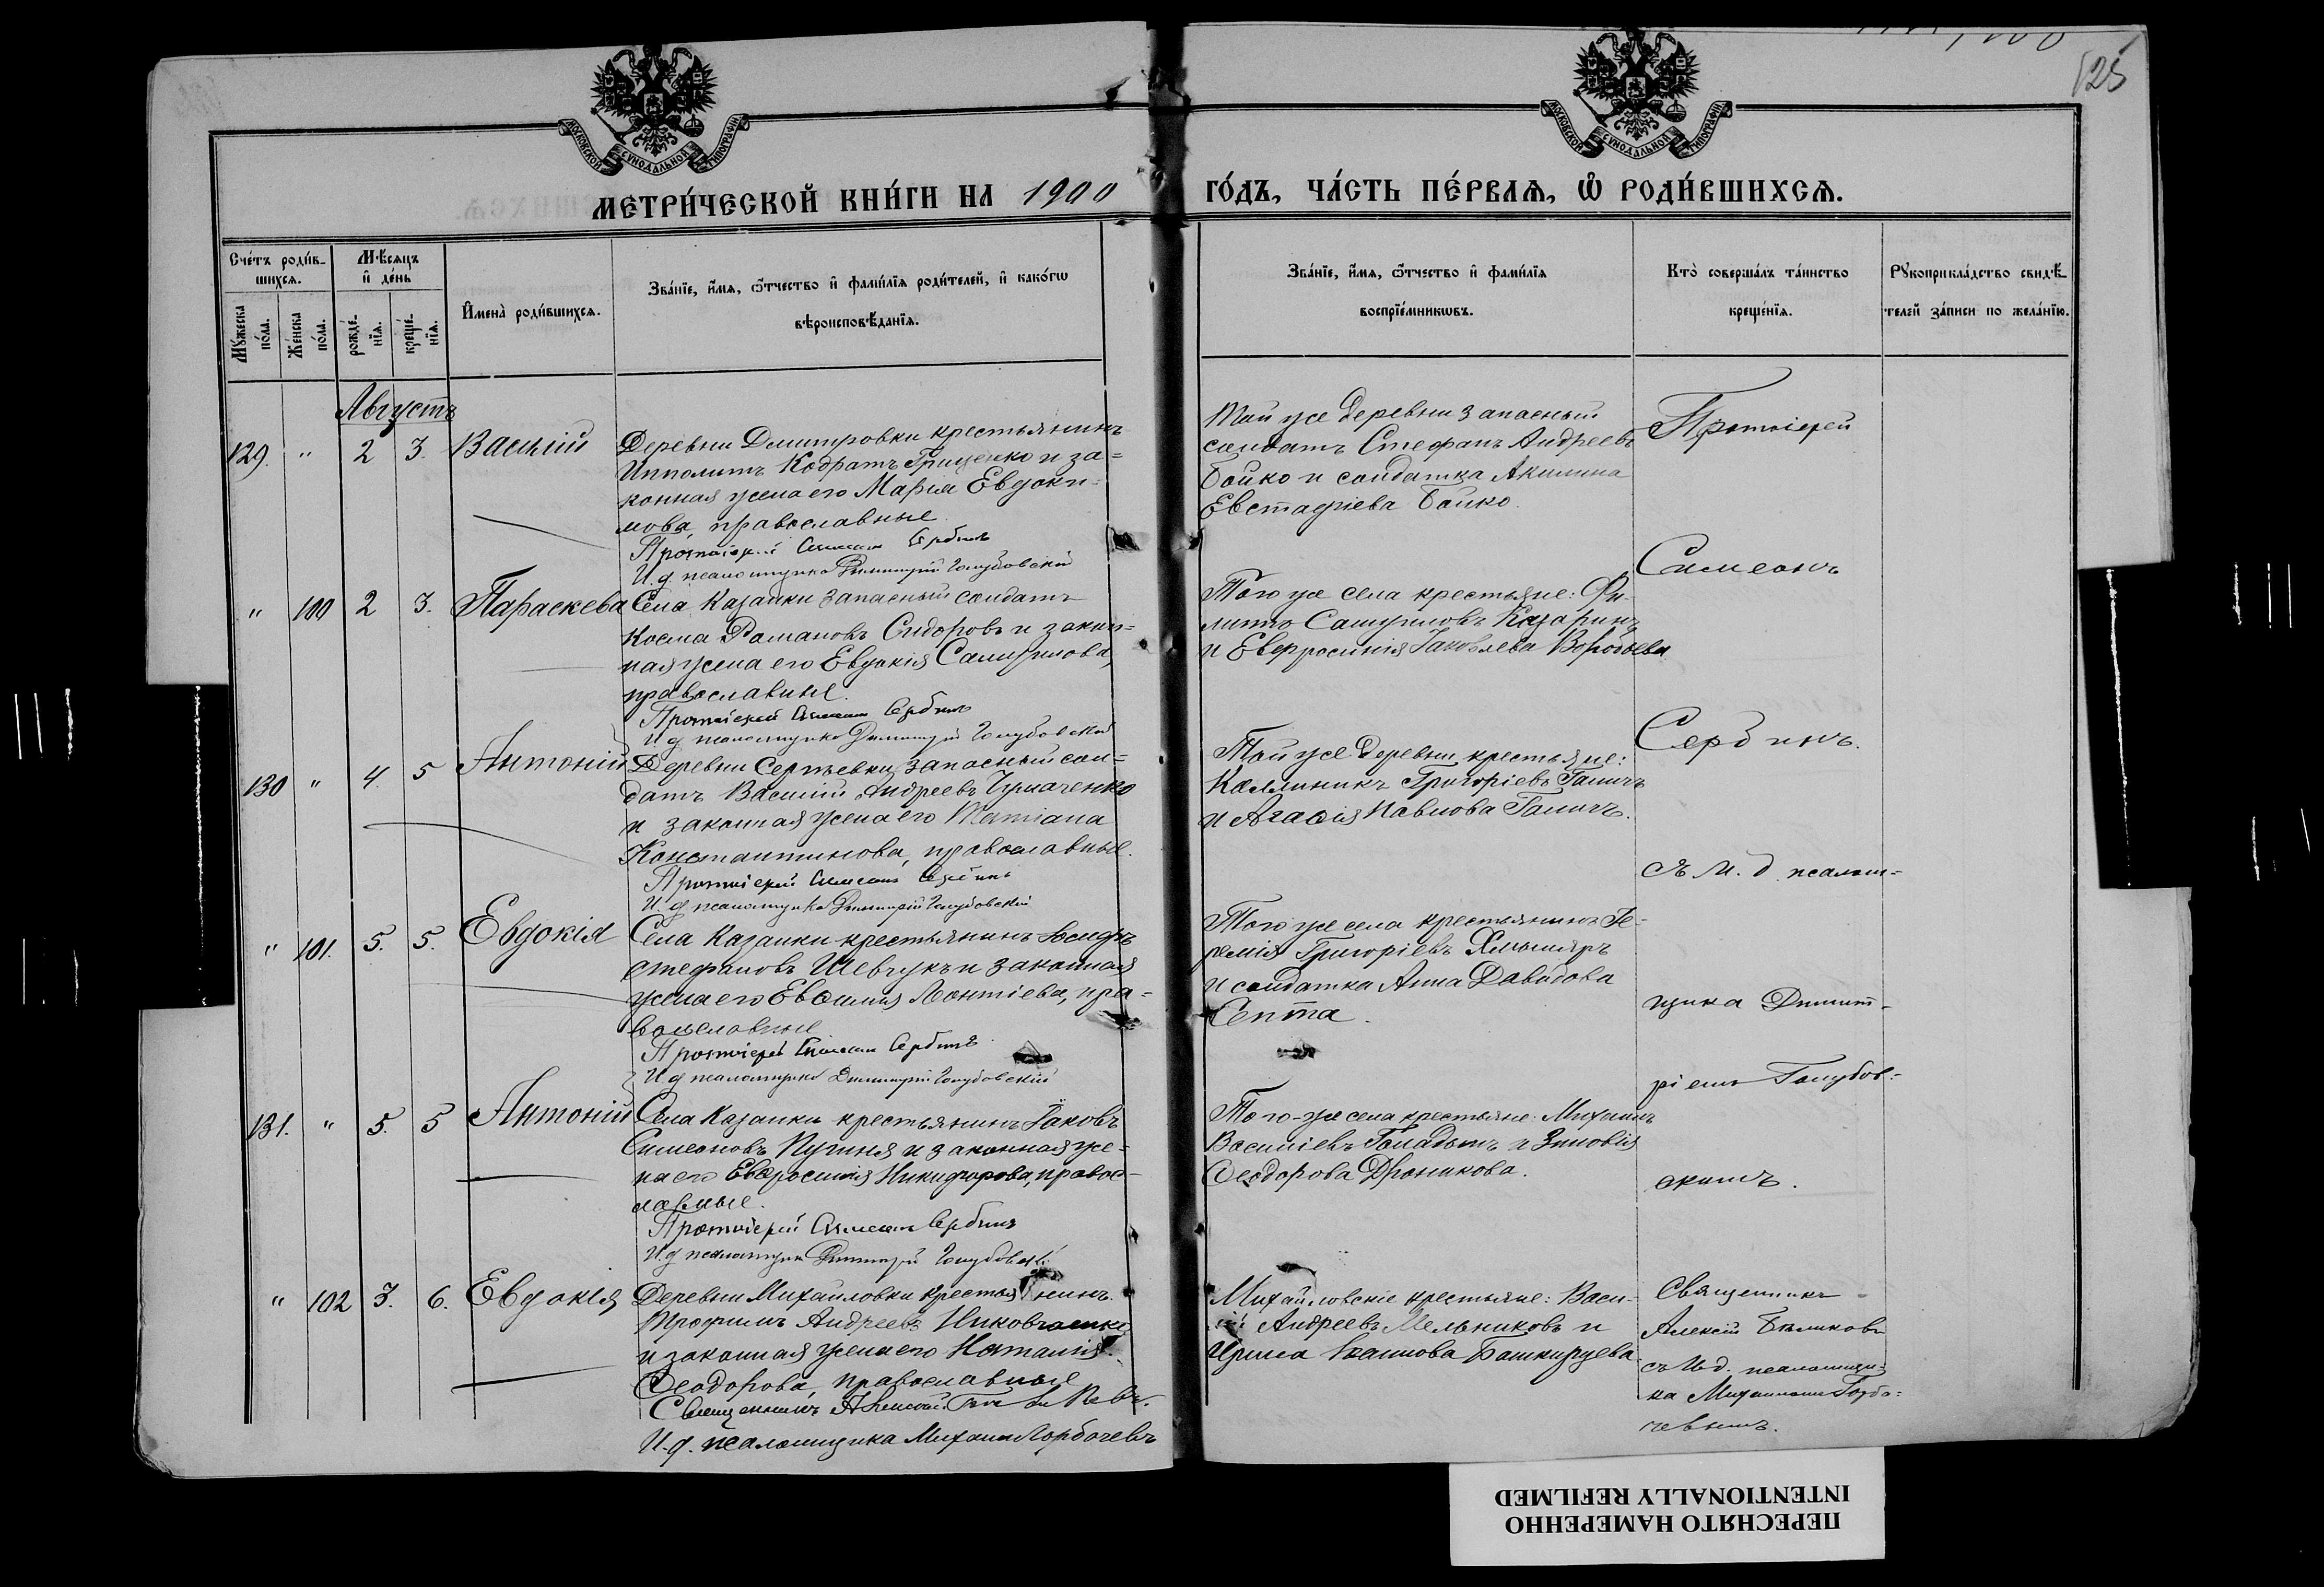 125
МОСКОВСКОЙ СѴНОДАЛЬНОЙ ТИПОГРАФІИ
МОСКОВСКОЙ СѴНОДАЛЬНОЙ ТИПОГРАФІИ
МЕТРИ́ЧЕСКОЙ КНИ́ГИ НА 1900 ГО́ДЪ, ЧА́СТЬ ПЕ́РВАѦ, Ѡ҆ РОДИ́ВШИХСѦ.
Сче́тъ роди́в-
шихсѧ.
Мꙋ́жеска по́ла.
Же́нска по́ла.
Мѣ́сѧцъ
и҆ де́нь
рожде́-
нїѧ.
креще́-
нїѧ.
И҆мена̀ роди́вшихсѧ.
Зва́нїе, и҆́мѧ, ѻ҆́тчество и҆ фамн́лїѧ роди́телей, и҆ како́гѡ
вѣроисповѣ́данїѧ.
Зва́нїе, и҆́мѧ, ѻ҆́тчество и҆ фами́лїѧ
воспрїе́мникѡвъ.
Кто̀ соверша́лъ та́инство
креще́нїѧ.
Рꙋкоприкла́дство свидѣ́-
телей за́писи по жела́нїю.
Августъ
129. " 2 3. Василій
Деревни Дмитровки крестьянинъ
Ипполитъ Кодратъ Грищенко и за=
конная жена его Марія Евдоки-
мова, православные.
Протоіерей Симеонъ Сербинъ
И. д. псаломщика Димитрій Голубовскій
Той же деревни запасный
солдатъ Стефанъ Андреевъ
Бойко и солдатка Акилина
Евстафіева Бойко.
Протоіерей
Симеонъ
Сербинъ.
съ И. д. псалом-
щика Димит-
ріемъ Голубов-
скимъ.
" 100 2 3. Параскева
Села Казанки запасный солдатъ
Косма Романовъ Сидоровъ и закон=
ная жена его Евдокія Самуилова,
православные.
Протоіерей Симеонъ Сербинъ
И. д. псаломщика Димитрій Голубовскій
Того же села крестьяне: Фи-
липъ Самуиловъ Казаринъ
и Евфросинія Іаковлева Воробьева
130 " 4. 5 Антоній
Деревни Сергѣевки запасный сол=
датъ Василій Андреевъ Чумаченко
и законная жена его Татіана
Константинова, православные.
Протоіерей Симеонъ Сербинъ
И. д. псаломщика Димитрій Голубовскій
Той же деревни крестьяне:
Каллиникъ Григоріевъ Галичъ
и Агафія Павлова Галичъ.
" 101. 5. 5. Евдокія
Села Казанки крестьянинъ Іосифъ
Стефановъ Шевчукъ и законная
жена его Евфимія Леонтіева, пра-
вославные.
Протоіерей Симеонъ Сербинъ
И. д. псаломщика Димитрій Голубовскій
Того же села крестьянинъ Іе-
ремія Григоріевъ
и солдатка Анна Давидова
Септа.
131. " 5. 5 Антоній
Села Казанки крестьянинъ Іаковъ
Симеоновъ и законная же-
на его Евфросинія Никифорова, правос-
лавные.
Протоіерей Симеонъ Сербинъ
И. д. псаломщика Димитрій Голубовскій
Того-же села крестьяне: Михаилъ
Василіевъ и Зиновія
Ѳеодорова Дроникова.
" 102 3. 6. Евдокія
Деревни Михайловки крестьянинъ
Трофимъ Андреевъ
и законная жена его Наталія
Ѳеодорова, православные
Священникъ Алексій Бѣликовъ.
И. д. псаломщика Михаилъ Горбачевъ
Михайловскіе крестьяне: Васи-
лій Андреевъ Мельниковъ и
Ирина Іоаннова Башкирцева
Священникъ
Алексій Бѣликовъ
съ И. д. псаломщи-
ка Михаиломъ Горба-
чевымъ.
ПЕРЕСНЯТО НАМЕРЕННО
INTENTIONALLY REFILMED